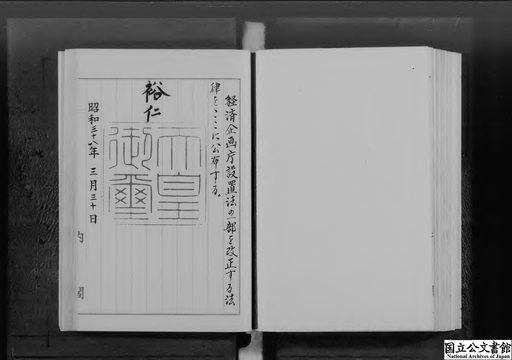 経済企画庁設置法の一部を改正する法
律をここに公布する。
裕仁
天皇
御璽
昭和三十八年三月三十日
内閣
国立公文書館
National Archives of Japan